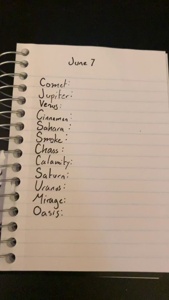 June 7
Comet:
Jupiter:
Venus:
Cinnamon:
Sahara:
Smoke:
Chaos:
Calamity:
Saturn:
Uranus:
Mirage:
Oasis: